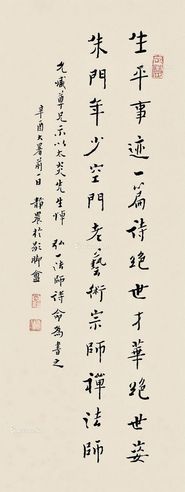 生平事迹一篇诗絕世才華絕世姿
朱門年少空門老藝術宗師禪法師
允臧尊兄示以太炎先生悼 弘一法師詩命為書之
辛酉大暑前一日 静農於龍腳盦